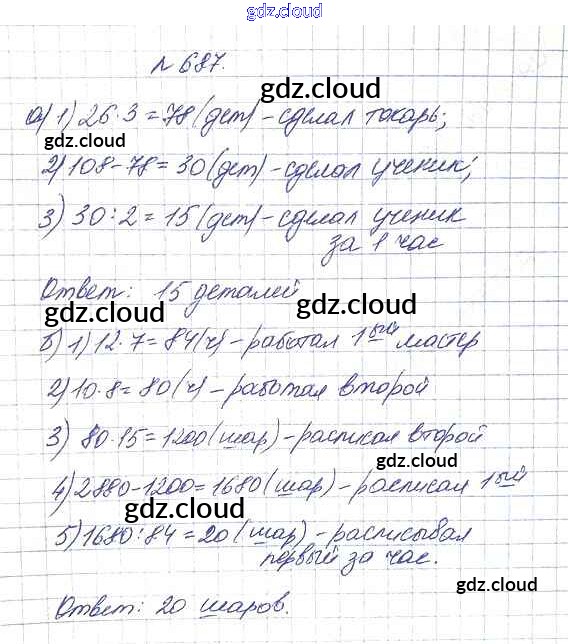 gdz.cloud
№ 687.
gdz.cloud
а) 1) 26·3=78 (дет) - сделал токарь;
gdz.cloud
2) 108-78=30 (дет) - сделал ученик;
gdz.cloud
3) 30:2=15 (дет) - сделал ученик
за 1 час
gdz.cloud
Ответ: 15 деталей
gdz.cloud
gdz.cloud
б) 1) 12·7=84 (ч) - работал 1ый мастер
2) 10·8=80 (ч) - работал второй
gdz.cloud
3) 80·15=1200 (шар) - расписал второй
gdz.cloud
4) 2880-1200=1680 (шар) - расписал 1ый
gdz.cloud
5) 1680:84=20 (шар) - расписывал
первый за час.
gdz.cloud
Ответ: 20 шаров.